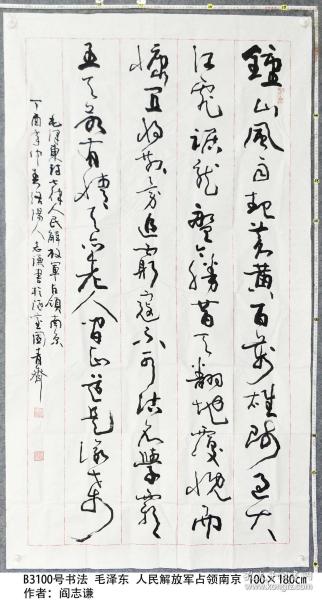 鐘山風雨起蒼黄百萬雄師過大
江虎踞龍盤勝昔天翻地覆慨而
慷宜將剩勇追窮寇不可沽名學霸
王天若有情天亦老人間正道是滄桑
毛澤東詩七律人民解放軍占領南京
丁酉年陽人志謙書於園齋
B3100号书法 毛泽东 人民解放军占领南京 100×180㎝
作者：阎志谦